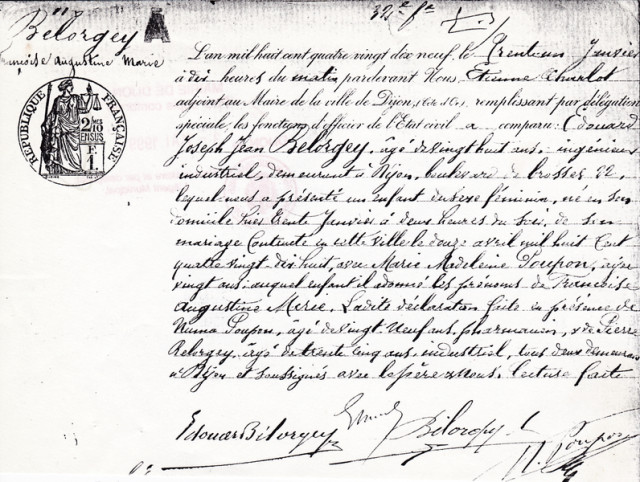 Belorgey
Françoise Augustine Marie
RÉPUBLIQUE FRANÇAISE
L'an mil huit cent quatre vingt dix neuf, le Trente-un Janvier
à dix heures du matin pardevant Nous, Etienne Charlot
adjoint au Maire de la ville de Dijon, (Côte d'Or), remplissant par délégation
spéciale, les fonctions d'officier de l'Etat civil a comparu: Edouard
Joseph Jean Belorgey, agé de vingt huit ans, ingénieur
industriel, demeurant à Dijon, boulevard de brosses 22,
lequel nous a présenté un enfant du sexe féminin, né en son
domicile hier trente Janvier à deux heures du soir, de son
mariage contracté en cette ville le douze avril mil huit cent
quatre vingt dix huit, avec Marie Madeleine Poupon, agée
vingt ans: auquel enfant il a donné les prénoms de Françoise
Augustine Marie. Ladite déclaration faite en présence de
Numa Poupon, agé de vingt-neuf ans, pharmacien, & de Pierre
Belorgey, âgé de trente cinq ans, industriel, tous deux demeurant
à Dijon et soussignés avec le père & nous. Lecture faite
Edouard Bélorgey
Bélorgey
N. Poupon